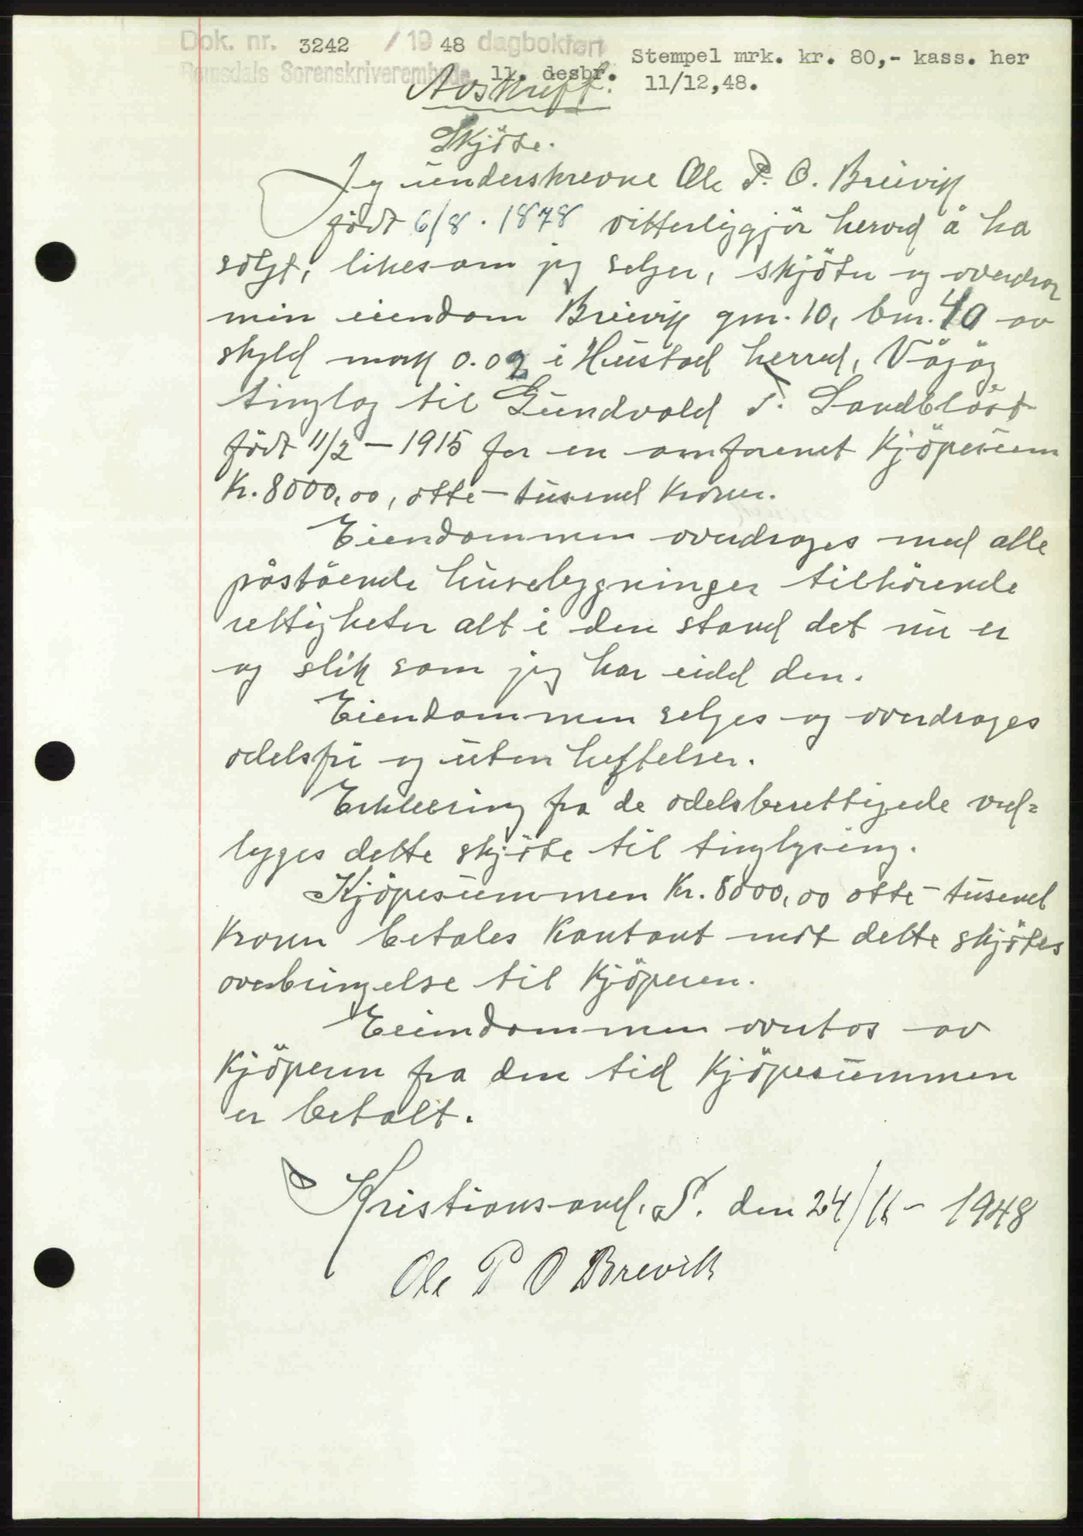 Dok. nr. 3242 / 19 48 dagbokført
Stempel mrk. kr. 80,- kass. her
Romsdals Sorenskriverembede 11. desbr.
11/12,48.
Avskrift.
Skjöte.
Jeg underskrevne Ole P. O. Breivik
född 6/8. 1878 vitterliggjör herved å ha
solgt, likesom jeg selger, skjöter og overdrar
min eiendom Breivik gnr. 10, bnr. 40 av
skyld mark 0.02 i Hustad herred, Vågöy
tinglag til Gundvald T. Sandblåst
född 11/2 - 1915 for en omforenet Kjöpesum
Kr. 8000,00, otte-tusend kroner.
Eiendommen overdrages med alle
påstående husebygninger tilhörende
rettigheter alt i den stand det nu er
og slik som jeg har eidd den.
Eiendommen selges og overdrages
odelsfri og uten heftelser.
Erkleering fra de odelsberettigede ved=
lyges dette skjöte til tinglysing.
Kjöpesummen Kr. 8000,00 otte-tusend
Kroner betales Kontant mot dette skjötes
overbringelse til Kjöperen.
Eeiendommen overtas av
Kjöperen fra den tid Kjöpesummen
er betalt.
Kristiansand. S. den 24/11- 1948
Ole P O Brevik